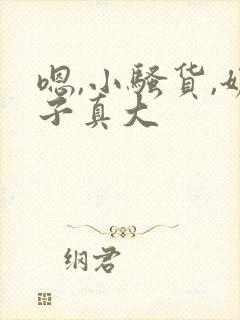 嗯,小骚货,
子真大
纲君